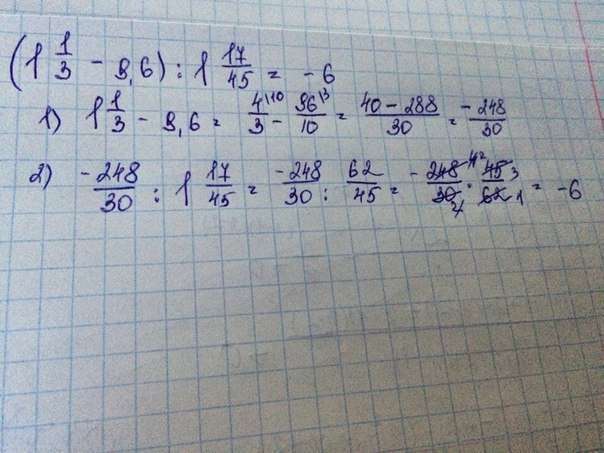 (1 1/3 - 9,6) : 1 17/45 = -6
1) 1 1/3 - 9,6 = 4\10/3 - 96\3/10 = 40 - 288/30 = -248/30
2) -248/30 : 1 17/45 = -248/30 : 62/45 = -248 4 2/30 2 1 · 45 3/62 1 = -6